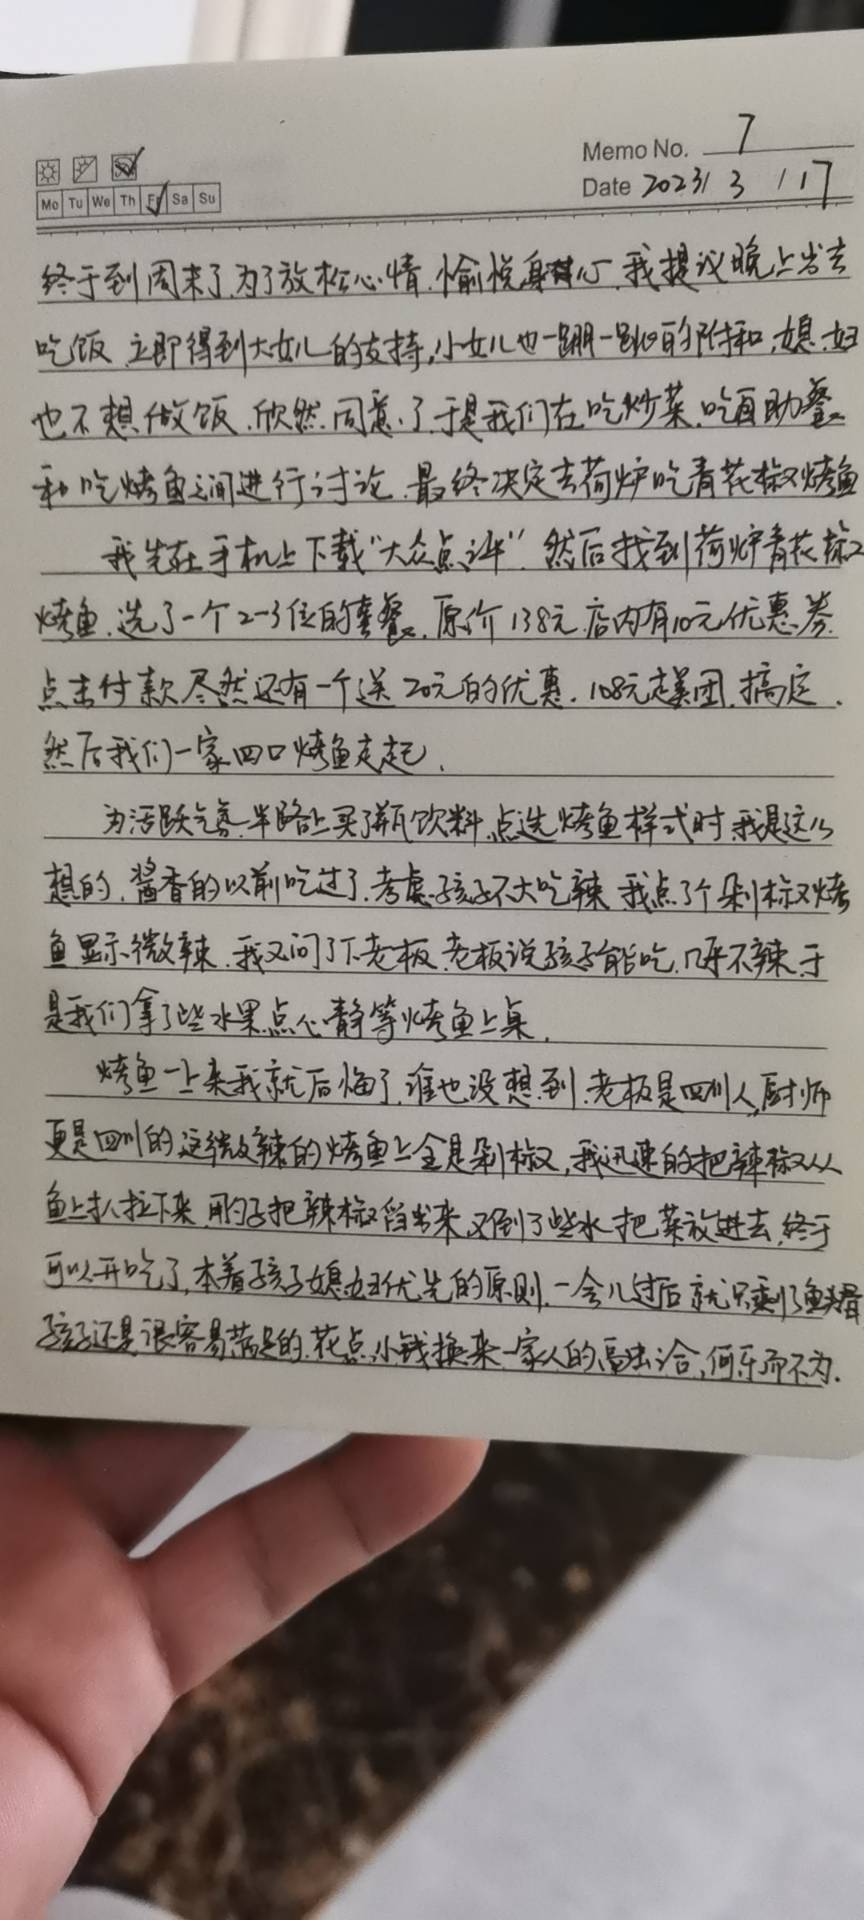 Memo No. 7
Mo Tu We Th Fr Sa Su
Date 2023/ 3 / 17
终于到周末了,为了放松心情,愉悦身心,我提议晚上出去
吃饭,立即得到大女儿的支持,小女儿也一蹦一跳的附和,媳妇
也不想做饭,欣然同意了,于是我们在吃炒菜,吃自助餐
和吃烤鱼之间进行讨论,最终决定去荷炉吃青花椒烤鱼
我先在手机上下载“大众点评”,然后找到荷炉青花椒
烤鱼,选了一个2-3位的套餐,原价138元,店内有10元优惠券,
点击付款尽然还有一个送20元的优惠,108元起团,搞定,
然后我们一家四口烤鱼走起,
为活跃气氛,半路上买了瓶饮料,点选烤鱼样式时,我是这么
想的,酱香的以前吃过了,考虑孩子不大吃辣,我点了个剁椒烤
鱼显示微辣,我又问了下老板,老板说孩子能吃,几乎不辣,于
是我们拿了些水果点心静等烤鱼上桌,
烤鱼一上来我就后悔了,谁也没想到,老板是四川人,厨师
更是四川的,这微辣的烤鱼上全是剁椒,我迅速的把辣椒从
鱼上扒拉下来,用勺子把辣椒舀出来,又倒了些水,把菜放进去,终于
可以开吃了,本着孩子媳妇优先的原则,一会儿过后就只剩了鱼骨
孩子还是很容易满足的,花点小钱换来一家人的高出洽,何乐而不为.